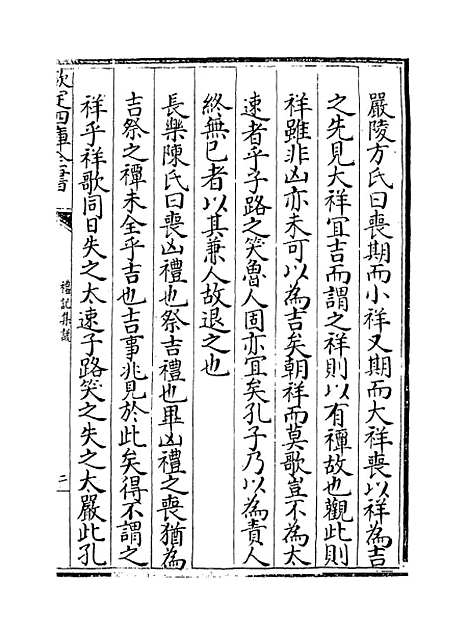 嚴陵方氏曰喪期而小祥又期而大祥喪以祥為吉
之先見大祥宜吉而謂之祥則以有禫故也觀此則
祥雖非凶亦未可以為吉矣朝祥而莫歌豈不為太
速者乎子路之笑魯人固亦宜矣孔子乃以為責人
終無已者以其兼人故退之也
長樂陳氏曰喪凶禮也祭吉禮也畢凶禮之喪猶為
吉祭之禫未全乎吉也吉事兆見於此矣得不謂之
祥乎祥歌同日失之太速子路笑之失之太嚴此孔
欽定四庫全書
禮記集說
二